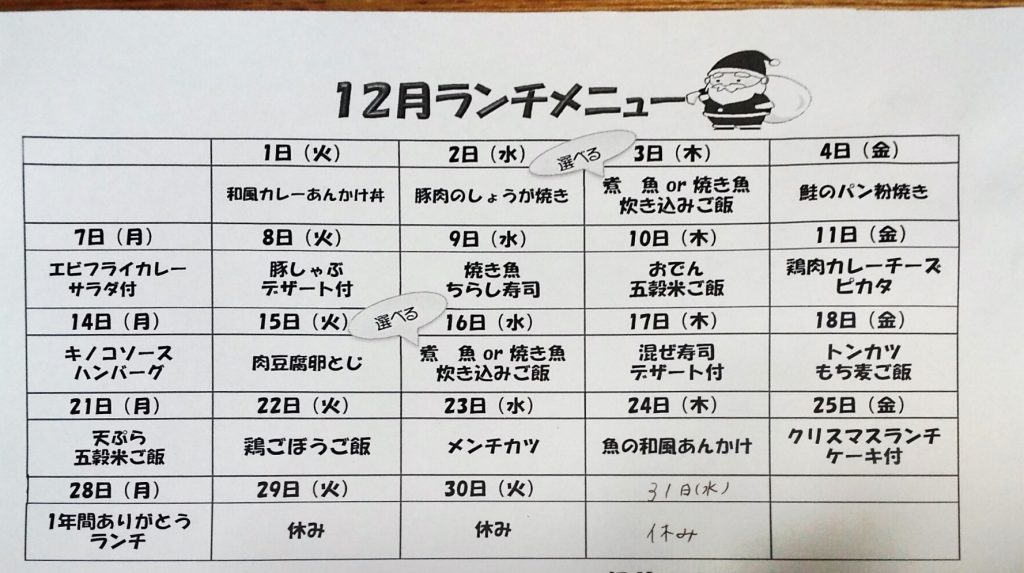 12月ランチメニュー
1日（火） 2日（水） 選べる 3日（木） 4日（金）
和風カレーあんかけ丼 豚肉のしょうが焼き 煮　魚 or 焼き魚 鮭のパン粉焼き
炊き込みご飯
7日（月） 8日（火） 9日（水） 10日（木） 11日（金）
エビフライカレー 豚しゃぶ 焼き魚 おでん 鶏肉カレーチーズ
サラダ付 デザート付 ちらし寿司 五穀米ご飯 ピカタ
14日（月） 15日（火） 選べる 16日（水） 17日（木） 18日（金）
キノコソース 肉豆腐卵とじ 煮　魚 or 焼き魚 混ぜ寿司 トンカツ
ハンバーグ 炊き込みご飯 デザート付 もち麦ご飯
21日（月） 22日（火） 23日（水） 24日（木） 25日（金）
天ぷら 鶏ごぼうご飯 メンチカツ 魚の和風あんかけ クリスマスランチ
五穀米ご飯 ケーキ付
28日（月） 29日（火） 30日（火） 31日(水)
1年間ありがとう 休み 休み 休み
ランチ